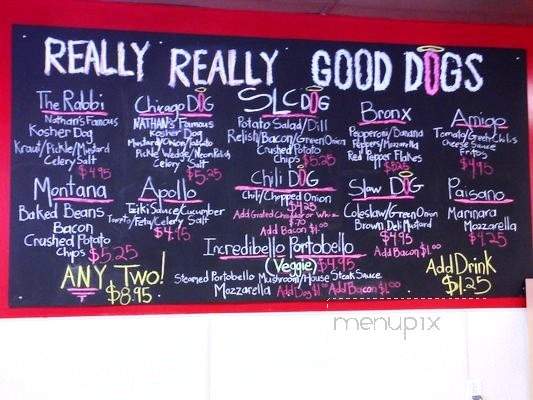 REALLY REALLY GOOD DOGS
The Rabbi
Nathan's Famous
Kosher Dog
Kraut/Pickle/Mustard
Celery Salt
$4.95
Chicago DOG
NATHAN's Famous
Kosher Dog
Mustard/Onion/Tomato
Pickle Wedge/Neon Relish
Celery Salt
$5.25
SLC DOG
Potato Salad/Dill
Relish/Bacon/Green Onion
Crushed Potato
Chips $5.25
Bronx
Pepperoni/Banana
Peppers/Mozzarella
Red Pepper Flakes
$5.25
Amigo
Tomato/Green Chilis
Cheese Sauce
Fritos
$4.95
Montana
Baked Beans
Bacon
Crushed Potato
Chips $5.25
Apollo
Tziki Sauce/Cucumber
Tomato/Feta/Celery Salt
$4.95
Chili DOG
Chili/Chopped Onion
$4.25
Add Grated Cheddar or
Add Bacon $1.00
Slaw DOG
Coleslaw/Green Onion
Brown Deli Mustard
$4.95
Add Bacon $1.00
Paisano
Marinara
Mozzarella
$4.25
Incredibello Portobello
(Veggie) $4.95
Steamed Portobello Mushroom/House Steak Sauce
Mozzarella Add Dog Add Bacon $1.00
ANY Two!
$8.95
Add Drink
$1.25
menupix